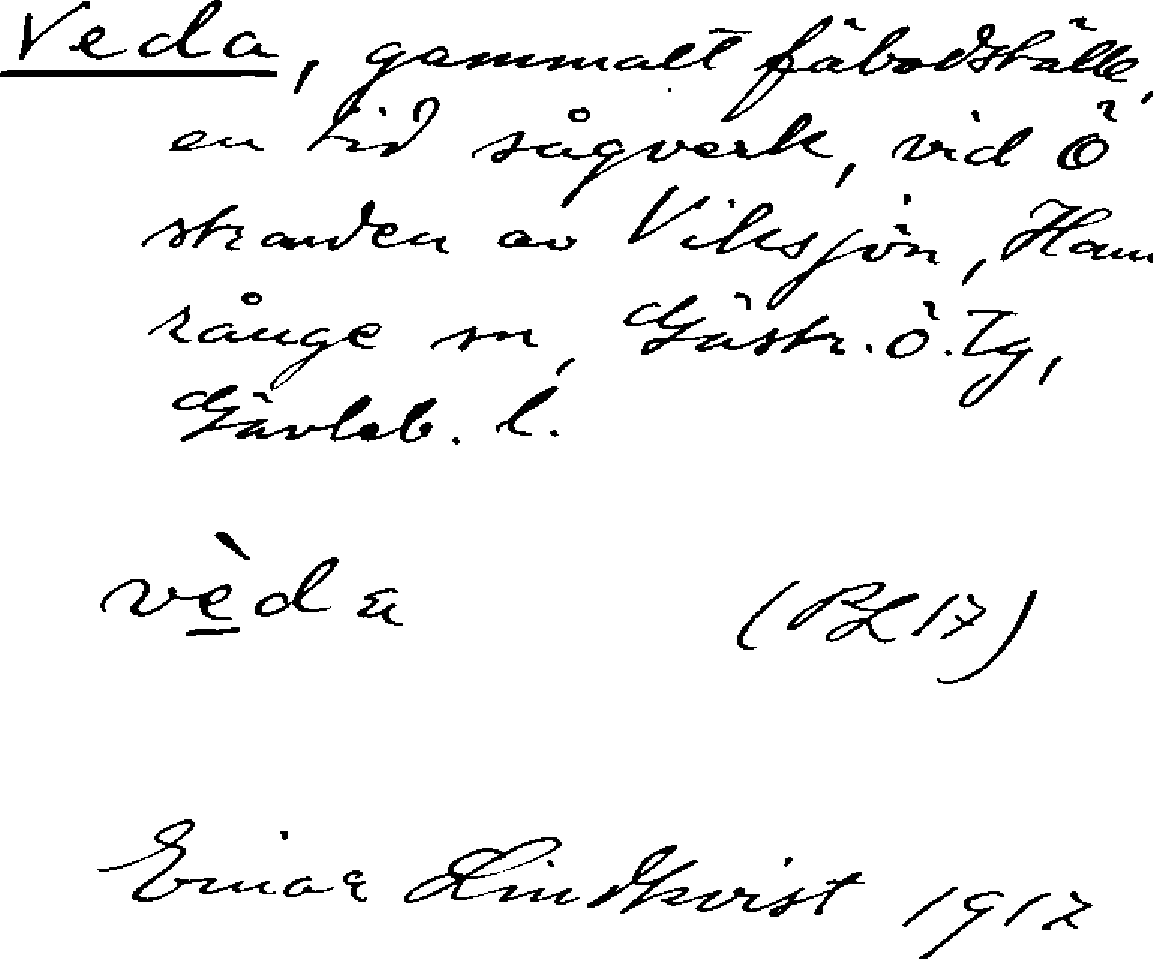 Veda, gammalt fäbodställe,
en tid sågverk, vid Ö
stranden av Viksjön, Ham
rånge sn, Gästr. ö. Tg,
Gävleb. l.
vèda (BL 17)
Einar Lindkvist 1917